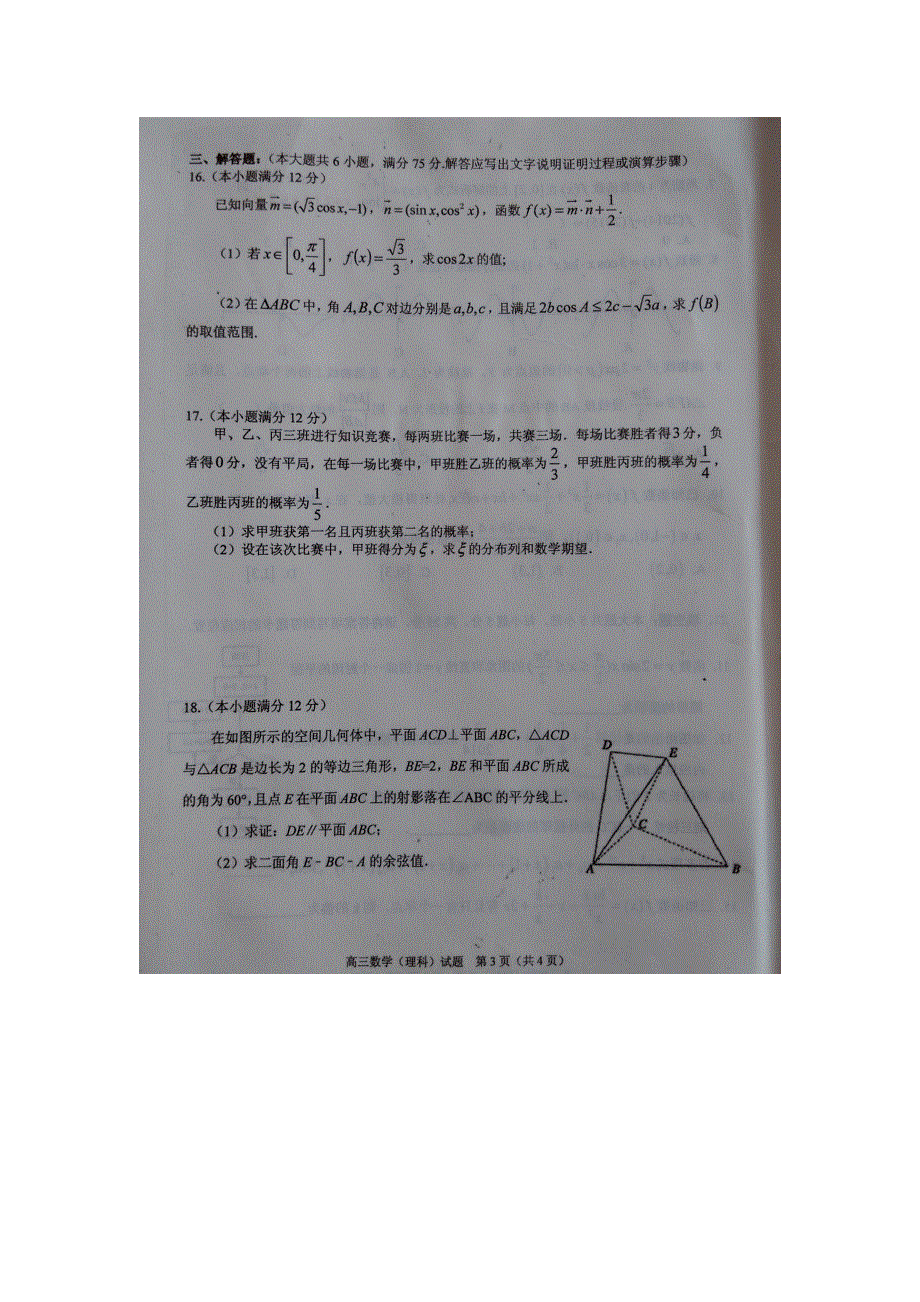 三、解答题:(本大题共 6 小题,满分 75 分.解答应写出文字说明证明过程或演算步骤)
16.(本小题满分 12 分)
已知向量 m⃗=(√3cosx,−1),n⃗=(sinx,cos²x),函数 f(x)=m⃗·n⃗+1/2.
(1)若 x∈[0,π/4],f(x)=√3/3,求cos2x的值;
(2)在 ΔABC 中,角 A,B,C 对边分别是 a,b,c,且满足 2bcosA≤2c−√3a,求 f(B)
的取值范围.
17.(本小题满分 12 分)
甲、乙、丙三班进行知识竞赛,每两班比赛一场,共赛三场.每场比赛胜者得3分,负
者得0分,没有平局,在每一场比赛中,甲班胜乙班的概率为2/3,甲班胜丙班的概率为1/4,
乙班胜丙班的概率为1/5.
(1)求甲班获第一名且丙班获第二名的概率;
(2)设在该次比赛中,甲班得分为ξ,求ξ的分布列和数学期望.
18.(本小题满分 12 分)
在如图所示的空间几何体中,平面 ACD⊥平面 ABC,△ACD
与△ACB 是边长为 2 的等边三角形,BE=2,BE 和平面 ABC 所成
的角为 60°,且点 E 在平面 ABC 上的射影落在∠ABC 的平分线上.
(1)求证:DE∥平面 ABC;
(2)求二面角 E﹣BC﹣A 的余弦值.
D
E
C
A
B
高三数学(理科)试题 第 3 页(共 4 页)